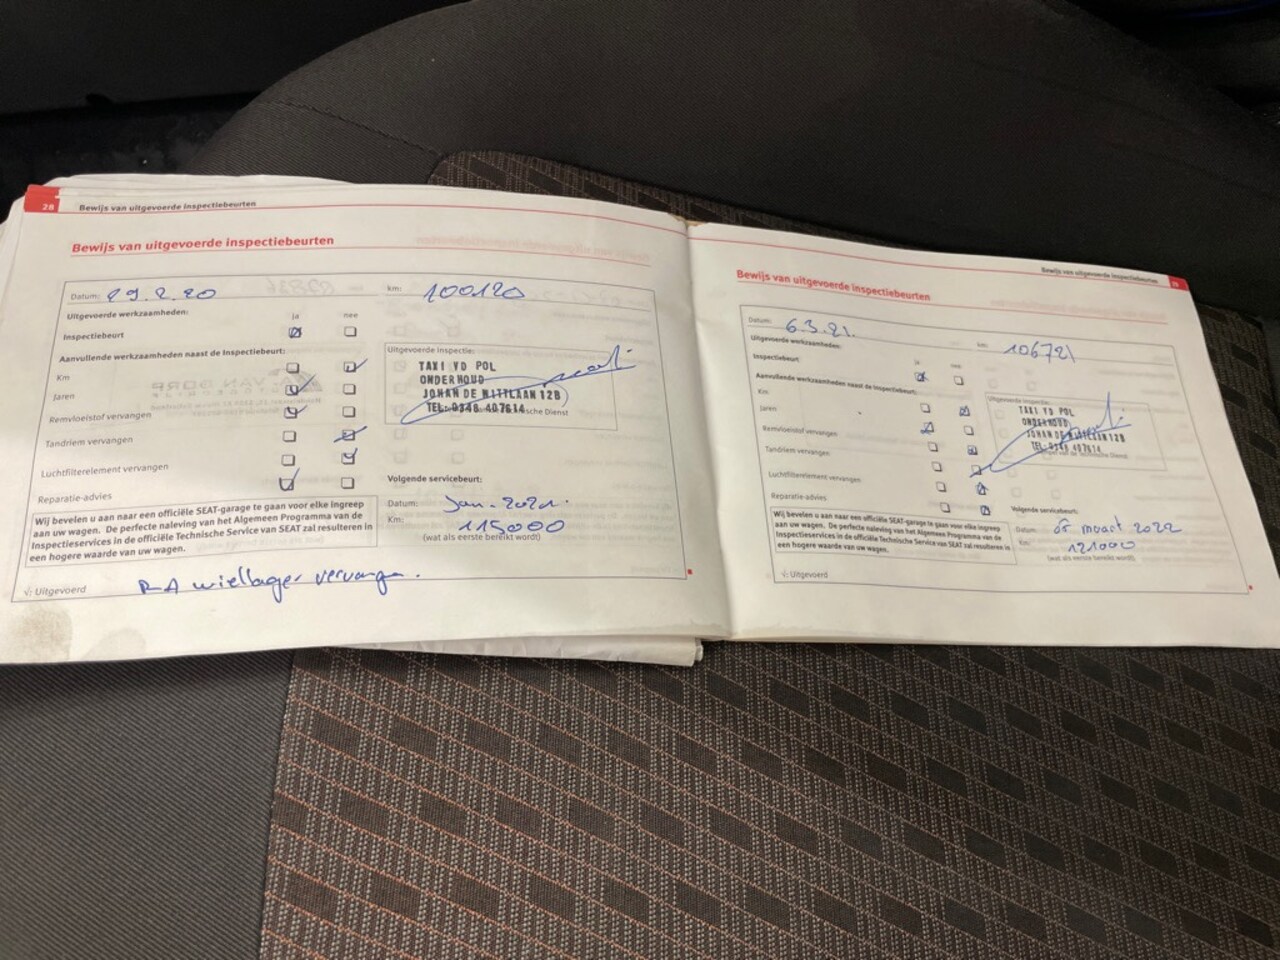 28 Bewijs van uitgevoerde inspectiebeurten
Bewijs van uitgevoerde inspectiebeurten
Datum: 29.2.20 km: 100120
Uitgevoerde werkzaamheden: ja nee
Inspectiebeurt
Aanvullende werkzaamheden naast de Inspectiebeurt:
Km
Jaren
Remvloeistof vervangen
Tandriem vervangen
Luchtfilterelement vervangen
Reparatie-advies
Uitgevoerde inspectie:
TAXI VD POL
ONDERHOUD
JOHAN DE WITTLAAN 12B
TEL: 0348 407614
Technische Dienst
Volgende servicebeurt:
Datum: Jan. 2021.
Km: 115000
(wat als eerste bereikt wordt)
Wij bevelen u aan naar een officiële SEAT-garage te gaan voor elke ingreep
aan uw wagen. De perfecte naleving van het Algemeen Programma van de
Inspectieservices in de officiële Technische Service van SEAT zal resulteren in
een hogere waarde van uw wagen.
√: Uitgevoerd
R-A wiellager vervangen.
Bewijs van uitgevoerde inspectiebeurten
Bewijs van uitgevoerde inspectiebeurten
Datum: 6.3.21. km: 106721
Uitgevoerde werkzaamheden: ja nee
Inspectiebeurt
Aanvullende werkzaamheden naast de Inspectiebeurt:
Km
Jaren
Remvloeistof vervangen
Tandriem vervangen
Luchtfilterelement vervangen
Reparatie-advies
Uitgevoerde inspectie:
TAXI VD POL
ONDERHOUD
JOHAN DE WITTLAAN 12B
TEL: 0348 407614
de Technische Dienst
Volgende servicebeurt:
Datum: maart 2022
Km: 121000
(wat als eerste bereikt wordt)
Wij bevelen u aan naar een officiële SEAT-garage te gaan voor elke ingreep
aan uw wagen. De perfecte naleving van het Algemeen Programma van de
Inspectieservices in de officiële Technische Service van SEAT zal resulteren in
een hogere waarde van uw wagen.
√: Uitgevoerd